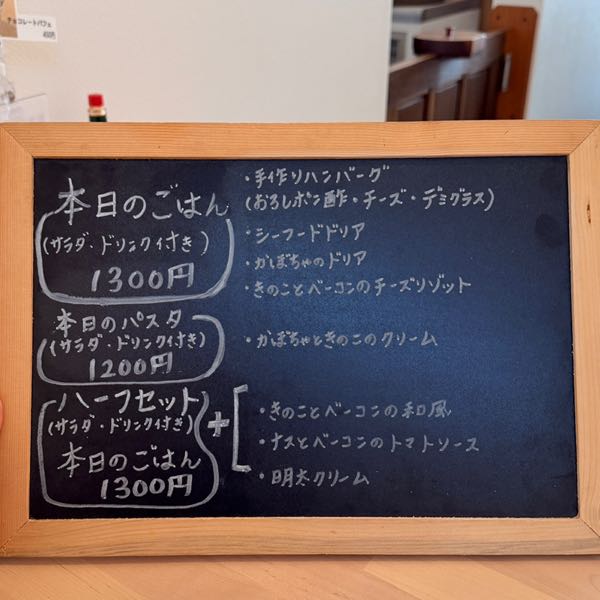 チョコレートパフェ
400円
本日のごはん
(サラダ・ドリンク付き)
1300円
・手作りハンバーグ
(おろしポン酢・チーズ・デミグラス)
・シーフードドリア
・かぼちゃのドリア
・きのことベーコンのチーズリゾット
本日のパスタ
(サラダ・ドリンク付き)
1200円
・かぼちゃときのこのクリーム
ハーフセット
(サラダ・ドリンク付き)
本日のごはん
1300円
+
・きのことベーコンの和風
・ナスとベーコンのトマトソース
・明太クリーム